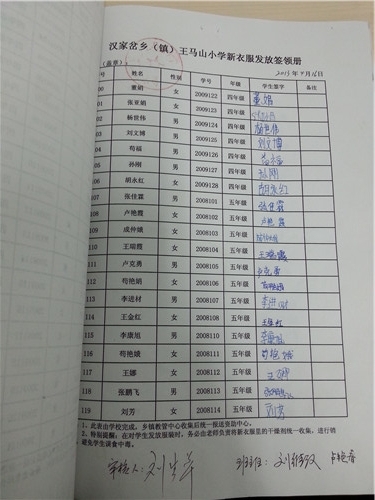 汉家岔乡（镇）王马山小学新衣服发放签领册
（盖章）： 2013年4月16日
号 姓名 性别 学号 年级 学生签字 备注
100 董娟 女 2009122 四年级 董娟
101 张亚娟 女 2009123 四年级
102 杨世伟 男 2009124 四年级 杨世伟
103 刘文博 男 2009125 四年级 刘文博
104 苟福 男 2009126 四年级
105 孙刚 男 2009127 四年级 孙刚
106 胡永红 女 2009128 四年级 胡永红
107 张佳霖 男 2008101 五年级 张佳霖
108 卢艳霞 女 2008102 五年级 卢艳霞
109 成仲娥 女 2008103 五年级
110 王瑞霞 女 2008104 五年级 王瑞霞
111 卢克勇 男 2008105 五年级 卢克勇
112 苟艳娟 女 2008106 五年级 苟艳娟
113 李进材 男 2008107 五年级 李进材
114 王金红 女 2008108 五年级 王金红
115 李康旭 男 2008110 五年级
116 苟艳娥 女 2008111 五年级 苟艳娥
117 王娜 女 2008112 五年级 王娜
118 张鹏飞 男 2008113 五年级
119 刘芳 女 2008114 五年级 刘芳
1、此表由学校完成，乡镇教管中心收集后统一报送资助中心。
2、特别提醒：在对学生发放服装时，务必由老师负责将新衣服里的干燥剂统一收集，进行销
毁避免学生误食中毒。
审核人： 班主任：